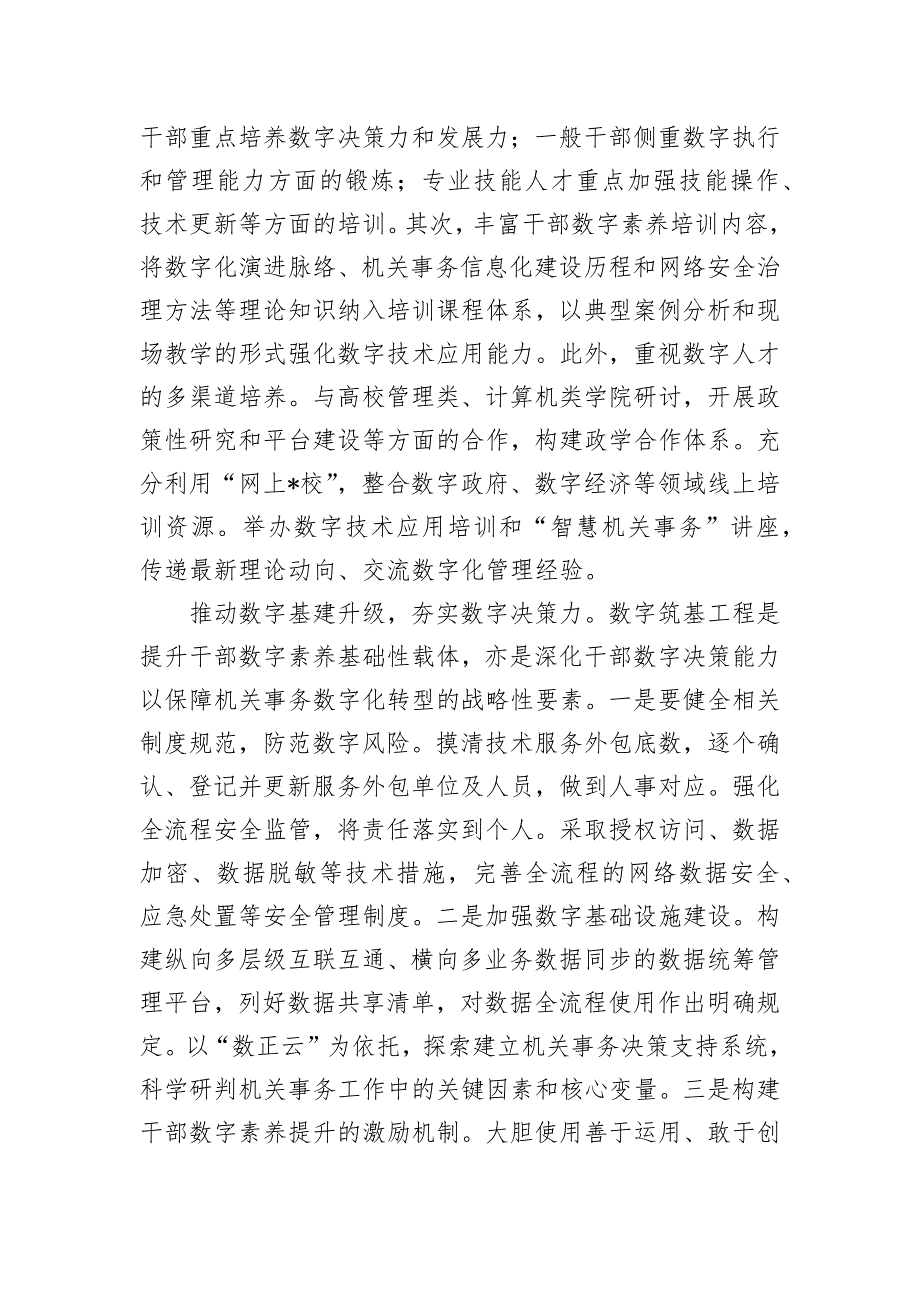 干部重点培养数字决策力和发展力；一般干部侧重数字执行
和管理能力方面的锻炼；专业技能人才重点加强技能操作、
技术更新等方面的培训。其次，丰富干部数字素养培训内容，
将数字化演进脉络、机关事务信息化建设历程和网络安全治
理方法等理论知识纳入培训课程体系，以典型案例分析和现
场教学的形式强化数字技术应用能力。此外，重视数字人才
的多渠道培养。与高校管理类、计算机类学院研讨，开展政
策性研究和平台建设等方面的合作，构建政学合作体系。充
分利用“网上*校”，整合数字政府、数字经济等领域线上培
训资源。举办数字技术应用培训和“智慧机关事务”讲座，
传递最新理论动向、交流数字化管理经验。
推动数字基建升级，夯实数字决策力。数字筑基工程是
提升干部数字素养基础性载体，亦是深化干部数字决策能力
以保障机关事务数字化转型的战略性要素。一是要健全相关
制度规范，防范数字风险。摸清技术服务外包底数，逐个确
认、登记并更新服务外包单位及人员，做到人事对应。强化
全流程安全监管，将责任落实到个人。采取授权访问、数据
加密、数据脱敏等技术措施，完善全流程的网络数据安全、
应急处置等安全管理制度。二是加强数字基础设施建设。构
建纵向多层级互联互通、横向多业务数据同步的数据统筹管
理平台，列好数据共享清单，对数据全流程使用作出明确规
定。以“数正云”为依托，探索建立机关事务决策支持系统，
科学研判机关事务工作中的关键因素和核心变量。三是构建
干部数字素养提升的激励机制。大胆使用善于运用、敢于创